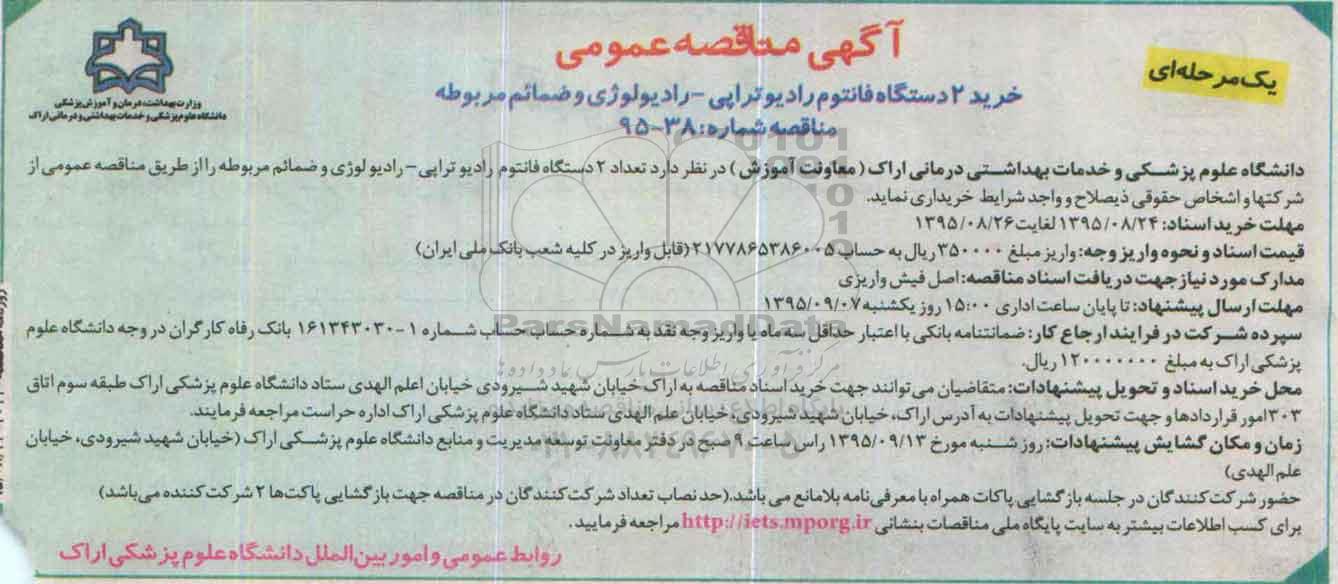 آگهی مناقصه عمومی
یک مرحله‌ای
خرید ۲ دستگاه فانتوم رادیوتراپی - رادیولوژی و ضمائم مربوطه
مناقصه شماره: ۳۸-۹۵
وزارت بهداشت، درمان و آموزش پزشکی
دانشگاه علوم پزشکی و خدمات بهداشتی و درمانی اراک
دانشگاه علوم پزشکی و خدمات بهداشتی درمانی اراک (معاونت آموزش) در نظر دارد تعداد ۲ دستگاه فانتوم رادیو تراپی - رادیو لوژی و ضمائم مربوطه را از طریق مناقصه عمومی از
شرکتها و اشخاص حقوقی ذیصلاح و واجد شرایط خریداری نماید.
مهلت خرید اسناد: ۱۳۹۵/۰۸/۲۴ لغایت ۱۳۹۵/۰۸/۲۶
قیمت اسناد و نحوه واریز وجه: واریز مبلغ ۳۵۰۰۰۰ ریال به حساب ۲۱۷۷۸۶۵۳۸۶۰۰۵ (قابل واریز در کلیه شعب بانک ملی ایران)
مدارک مورد نیاز جهت دریافت اسناد مناقصه: اصل فیش واریزی
مهلت ارسال پیشنهاد: تا پایان ساعت اداری ۱۵:۰۰ روز یکشنبه ۱۳۹۵/۰۹/۰۷
سپرده شرکت در فرایند ارجاع کار: ضمانتنامه بانکی با اعتبار حداقل سه ماه یا واریز وجه نقد به شماره حساب حساب شماره ۱-۱۶۱۳۴۳۰۳۰ بانک رفاه کارگران در وجه دانشگاه علوم
پزشکی اراک به مبلغ ۱۲۰۰۰۰۰۰۰ ریال.
محل خرید اسناد و تحویل پیشنهادات: متقاضیان می توانند جهت خرید اسناد مناقصه به اراک خیابان شهید شیرودی خیابان اعلم الهدی ستاد دانشگاه علوم پزشکی اراک طبقه سوم اتاق
۳۰۳ امور قراردادها و جهت تحویل پیشنهادات به آدرس اراک، خیابان شهید شیرودی، خیابان علم الهدی ستاد دانشگاه علوم پزشکی اراک اداره حراست مراجعه فرمایند.
زمان و مکان گشایش پیشنهادات: روز شنبه مورخ ۱۳۹۵/۰۹/۱۳ راس ساعت ۹ صبح در دفتر معاونت توسعه مدیریت و منابع دانشگاه علوم پزشکی اراک (خیابان شهید شیرودی، خیابان
علم الهدی)
حضور شرکت کنندگان در جلسه بازگشایی پاکات همراه با معرفی نامه بلامانع می باشد. (حد نصاب تعداد شرکت کنندگان در مناقصه جهت بازگشایی پاکت‌ها ۲ شرکت کننده می‌باشد)
برای کسب اطلاعات بیشتر به سایت پایگاه ملی مناقصات بنشانی http://iets.mporg.ir مراجعه فرمایید.
روابط عمومی و امور بین الملل دانشگاه علوم پزشکی اراک
ParsNamadData